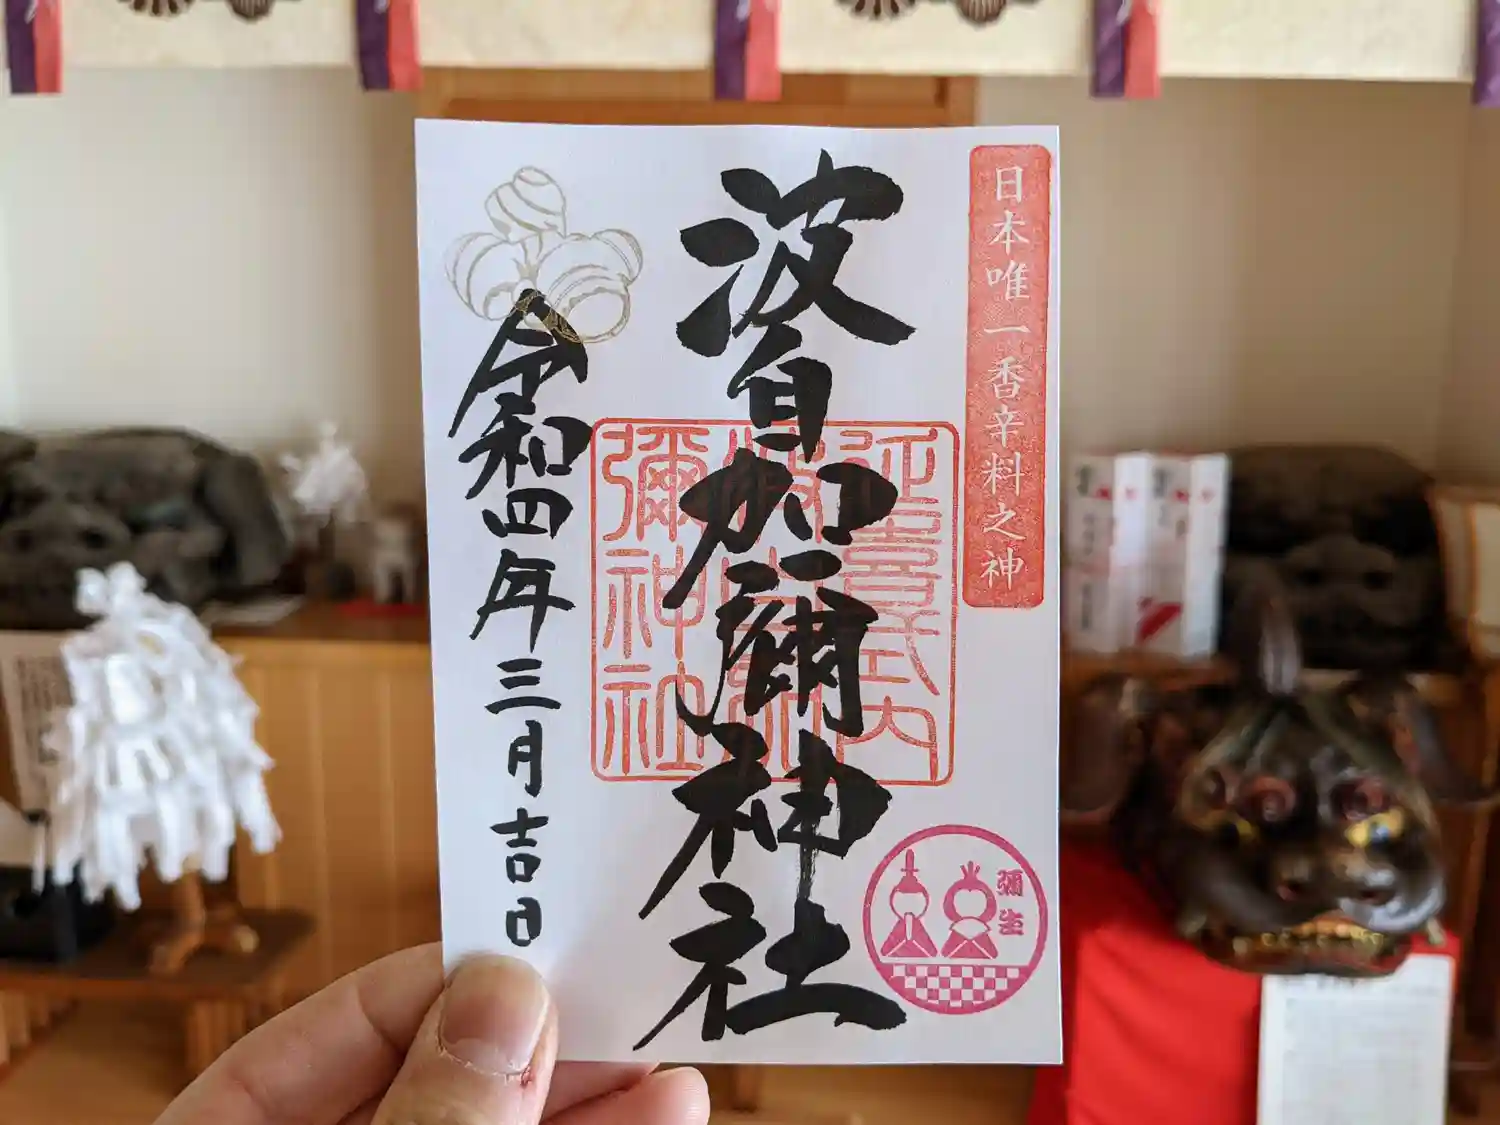 日本唯一香辛料之神
波自加彌神社
延喜式内
彌神社
令和四年三月吉日
彌生